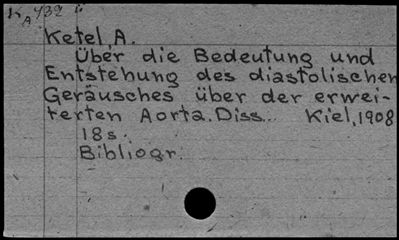 K A 432
Ketel, A.
Über die Bedeutung und
Entstehung des diastolischen
Geräusches über der erwei-
terten Aorta. Diss. Kiel, 1908
18s.
Bibliogr.